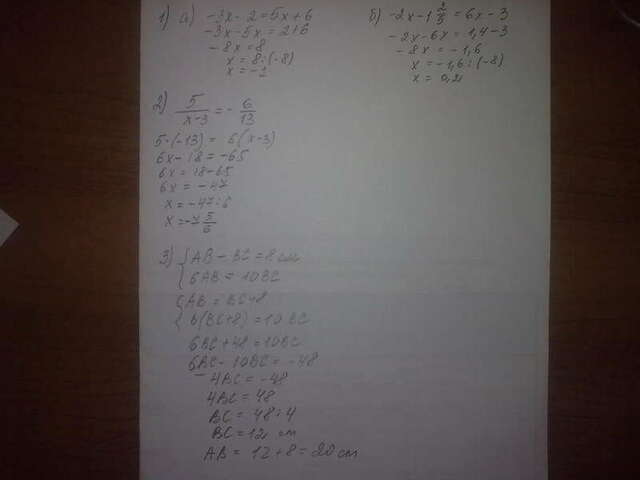 1) а) -3x - 2 = 5x + 6
-3x - 5x = 2+6
-8x = 8
x = 8:(-8)
x = -1
б) -2x - 1 2/3 = 6x - 3
-2x - 6x = 1,4 - 3
-8x = -1,6
x = -1,6:(-8)
x = 0,2
2) 5/(x-3) = - 6/13
5·(-13) = 6(x-3)
6x - 18 = -65
6x = 18-65
6x = -47
x = -47:6
x = -7 5/6
3) { AB - BC = 8 см
6AB = 10BC
{ AB = BC+8
6(BC+8) = 10BC
6BC + 48 = 10BC
6BC - 10BC = -48
-4BC = -48
4BC = 48
BC = 48:4
BC = 12 см
AB = 12 + 8 = 20 см